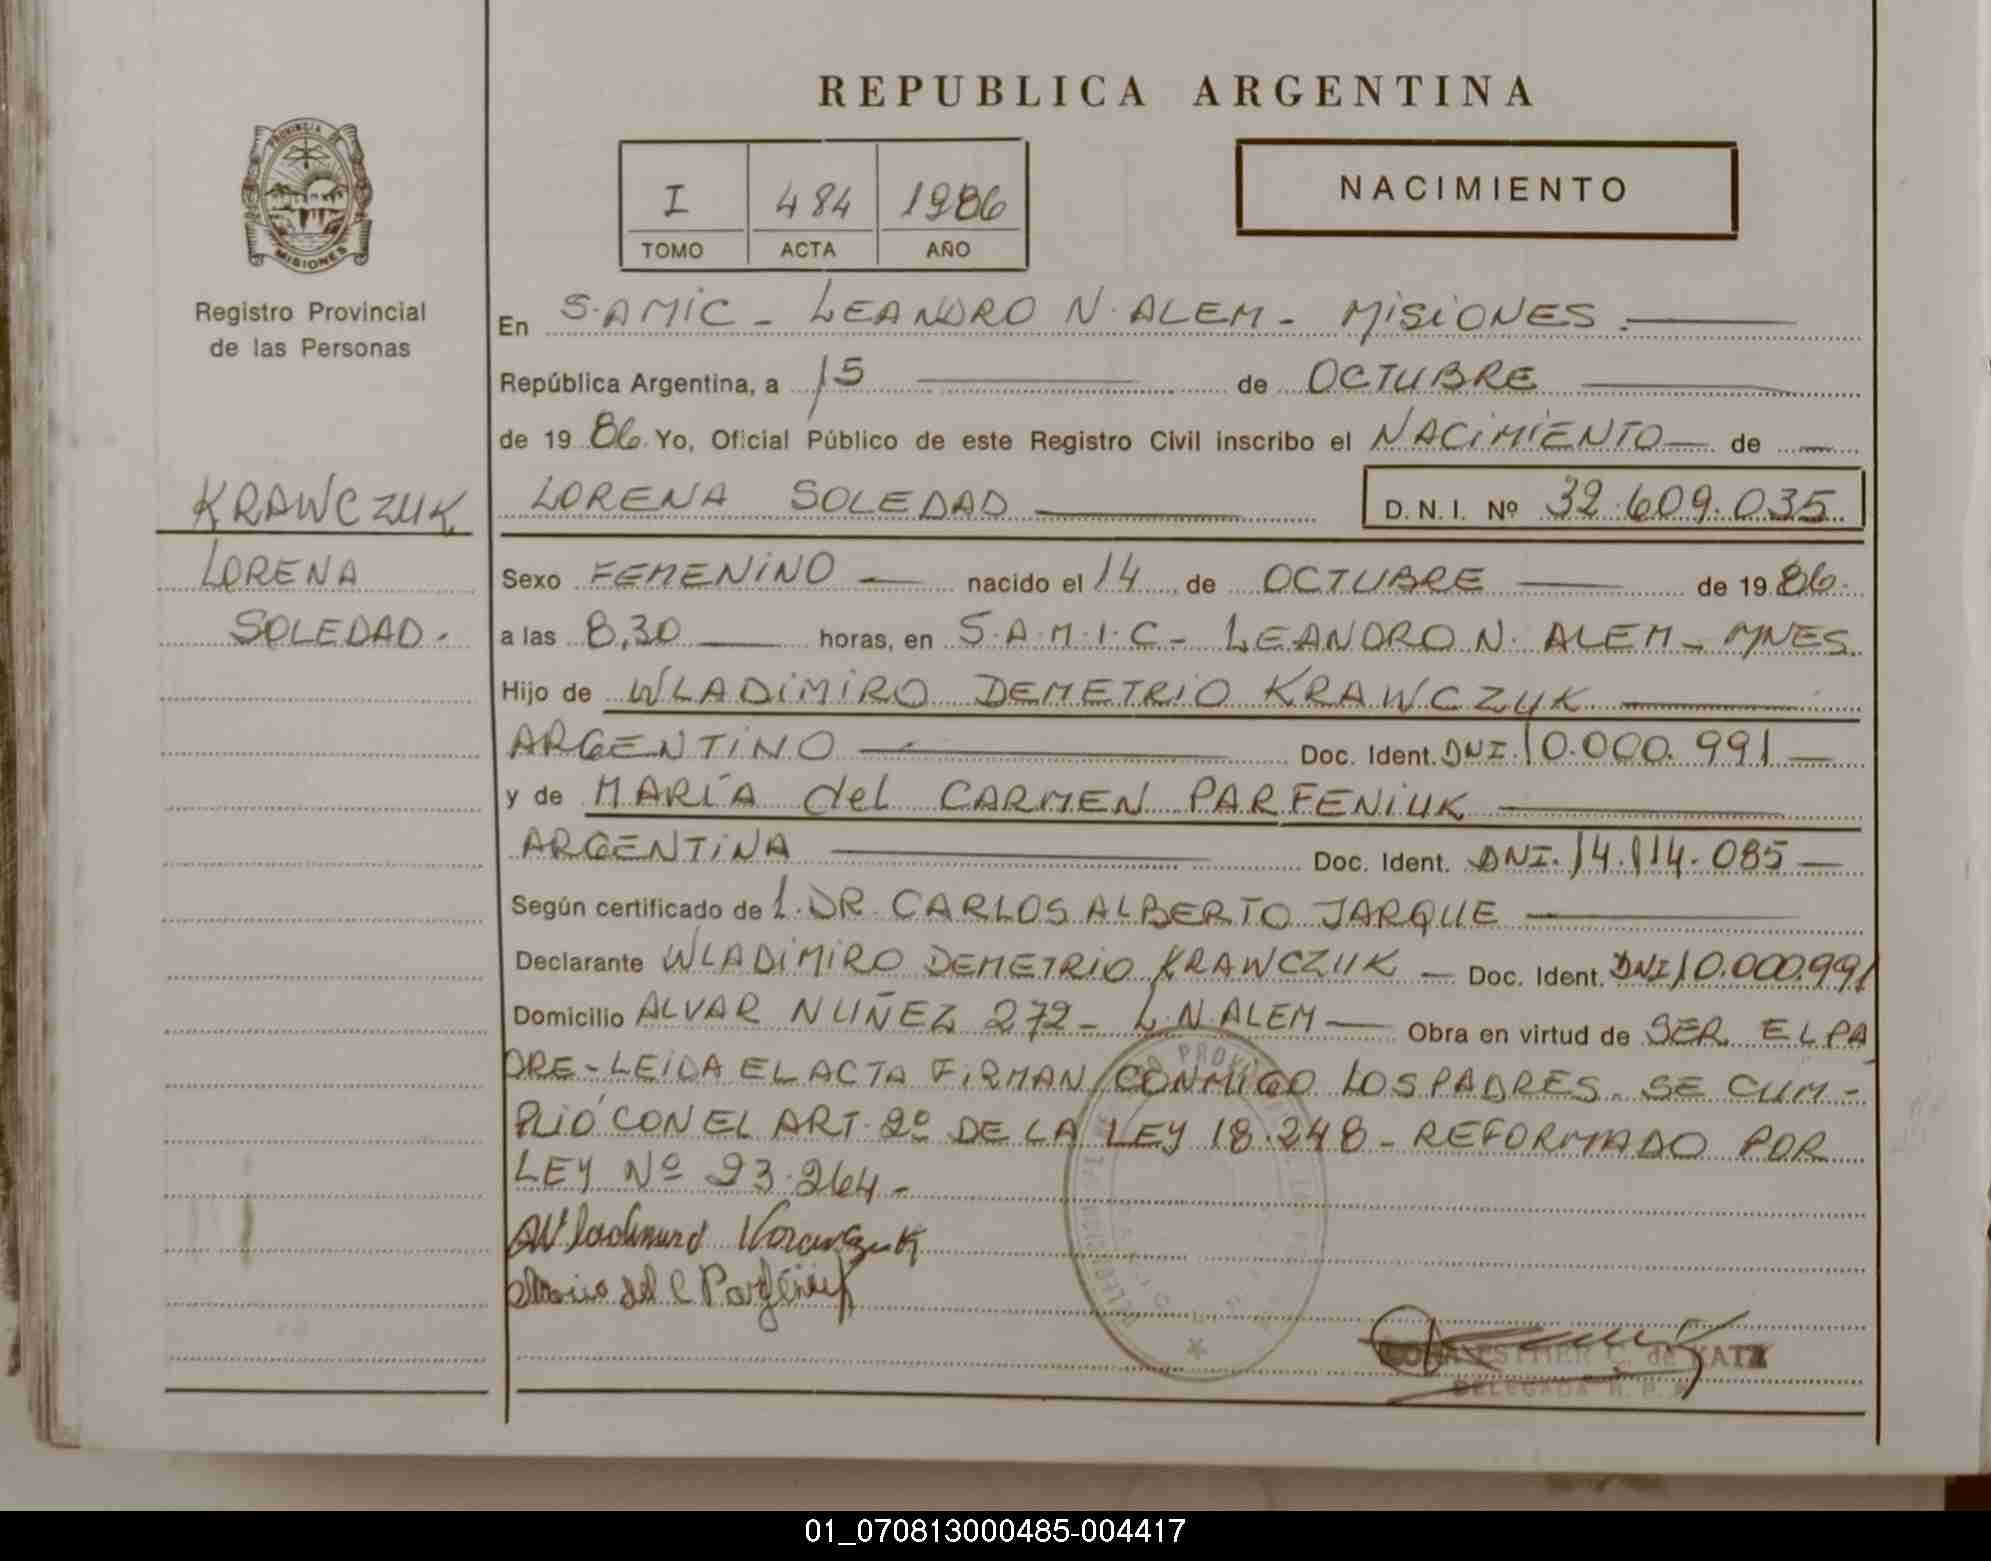 REPUBLICA ARGENTINA
PROVINCIA DE
MISIONES
Registro Provincial
de las Personas
I 484 1986
TOMO ACTA AÑO
NACIMIENTO
En S.AMIC - LEANDRO N. ALEM - MISIONES.
República Argentina, a 15 de OCTUBRE
de 1986 Yo, Oficial Público de este Registro Civil inscribo el NACIMIENTO de
KRAWCZUK
LORENA
SOLEDAD.
LORENA SOLEDAD D.N.I. Nº 32.609.035
Sexo FEMENINO nacido el 14 de OCTUBRE de 1986.
a las 8,30 horas, en S.A.M.I.C - LEANDRO N. ALEM - MNES.
Hijo de WLADIMIRO DEMETRIO KRAWCZUK
ARGENTINO Doc. Ident. DNI.10.000.991
y de MARÍA del CARMEN PARFENIUK
ARGENTINA Doc. Ident. DNI.14.114.085
Según certificado de l. DR. CARLOS ALBERTO JARQUE
Declarante WLADIMIRO DEMETRIO KRAWCZUK - Doc. Ident. DNI 10.000.991
Domicilio ALVAR NUÑEZ 272 - L.N. ALEM Obra en virtud de SER EL PA
DRE - LEIDA EL ACTA FIRMAN CONMIGO LOS PADRES. SE CUM-
PLIÓ CON EL ART. 2º DE LA LEY 18.248 - REFORMADO POR
LEY Nº 23.264 -
Wladimiro Krawczuk
Maria del C Parfeniuk
ESTHER C. de KATZ
DELEGADA R. P. P.
01_070813000485-004417